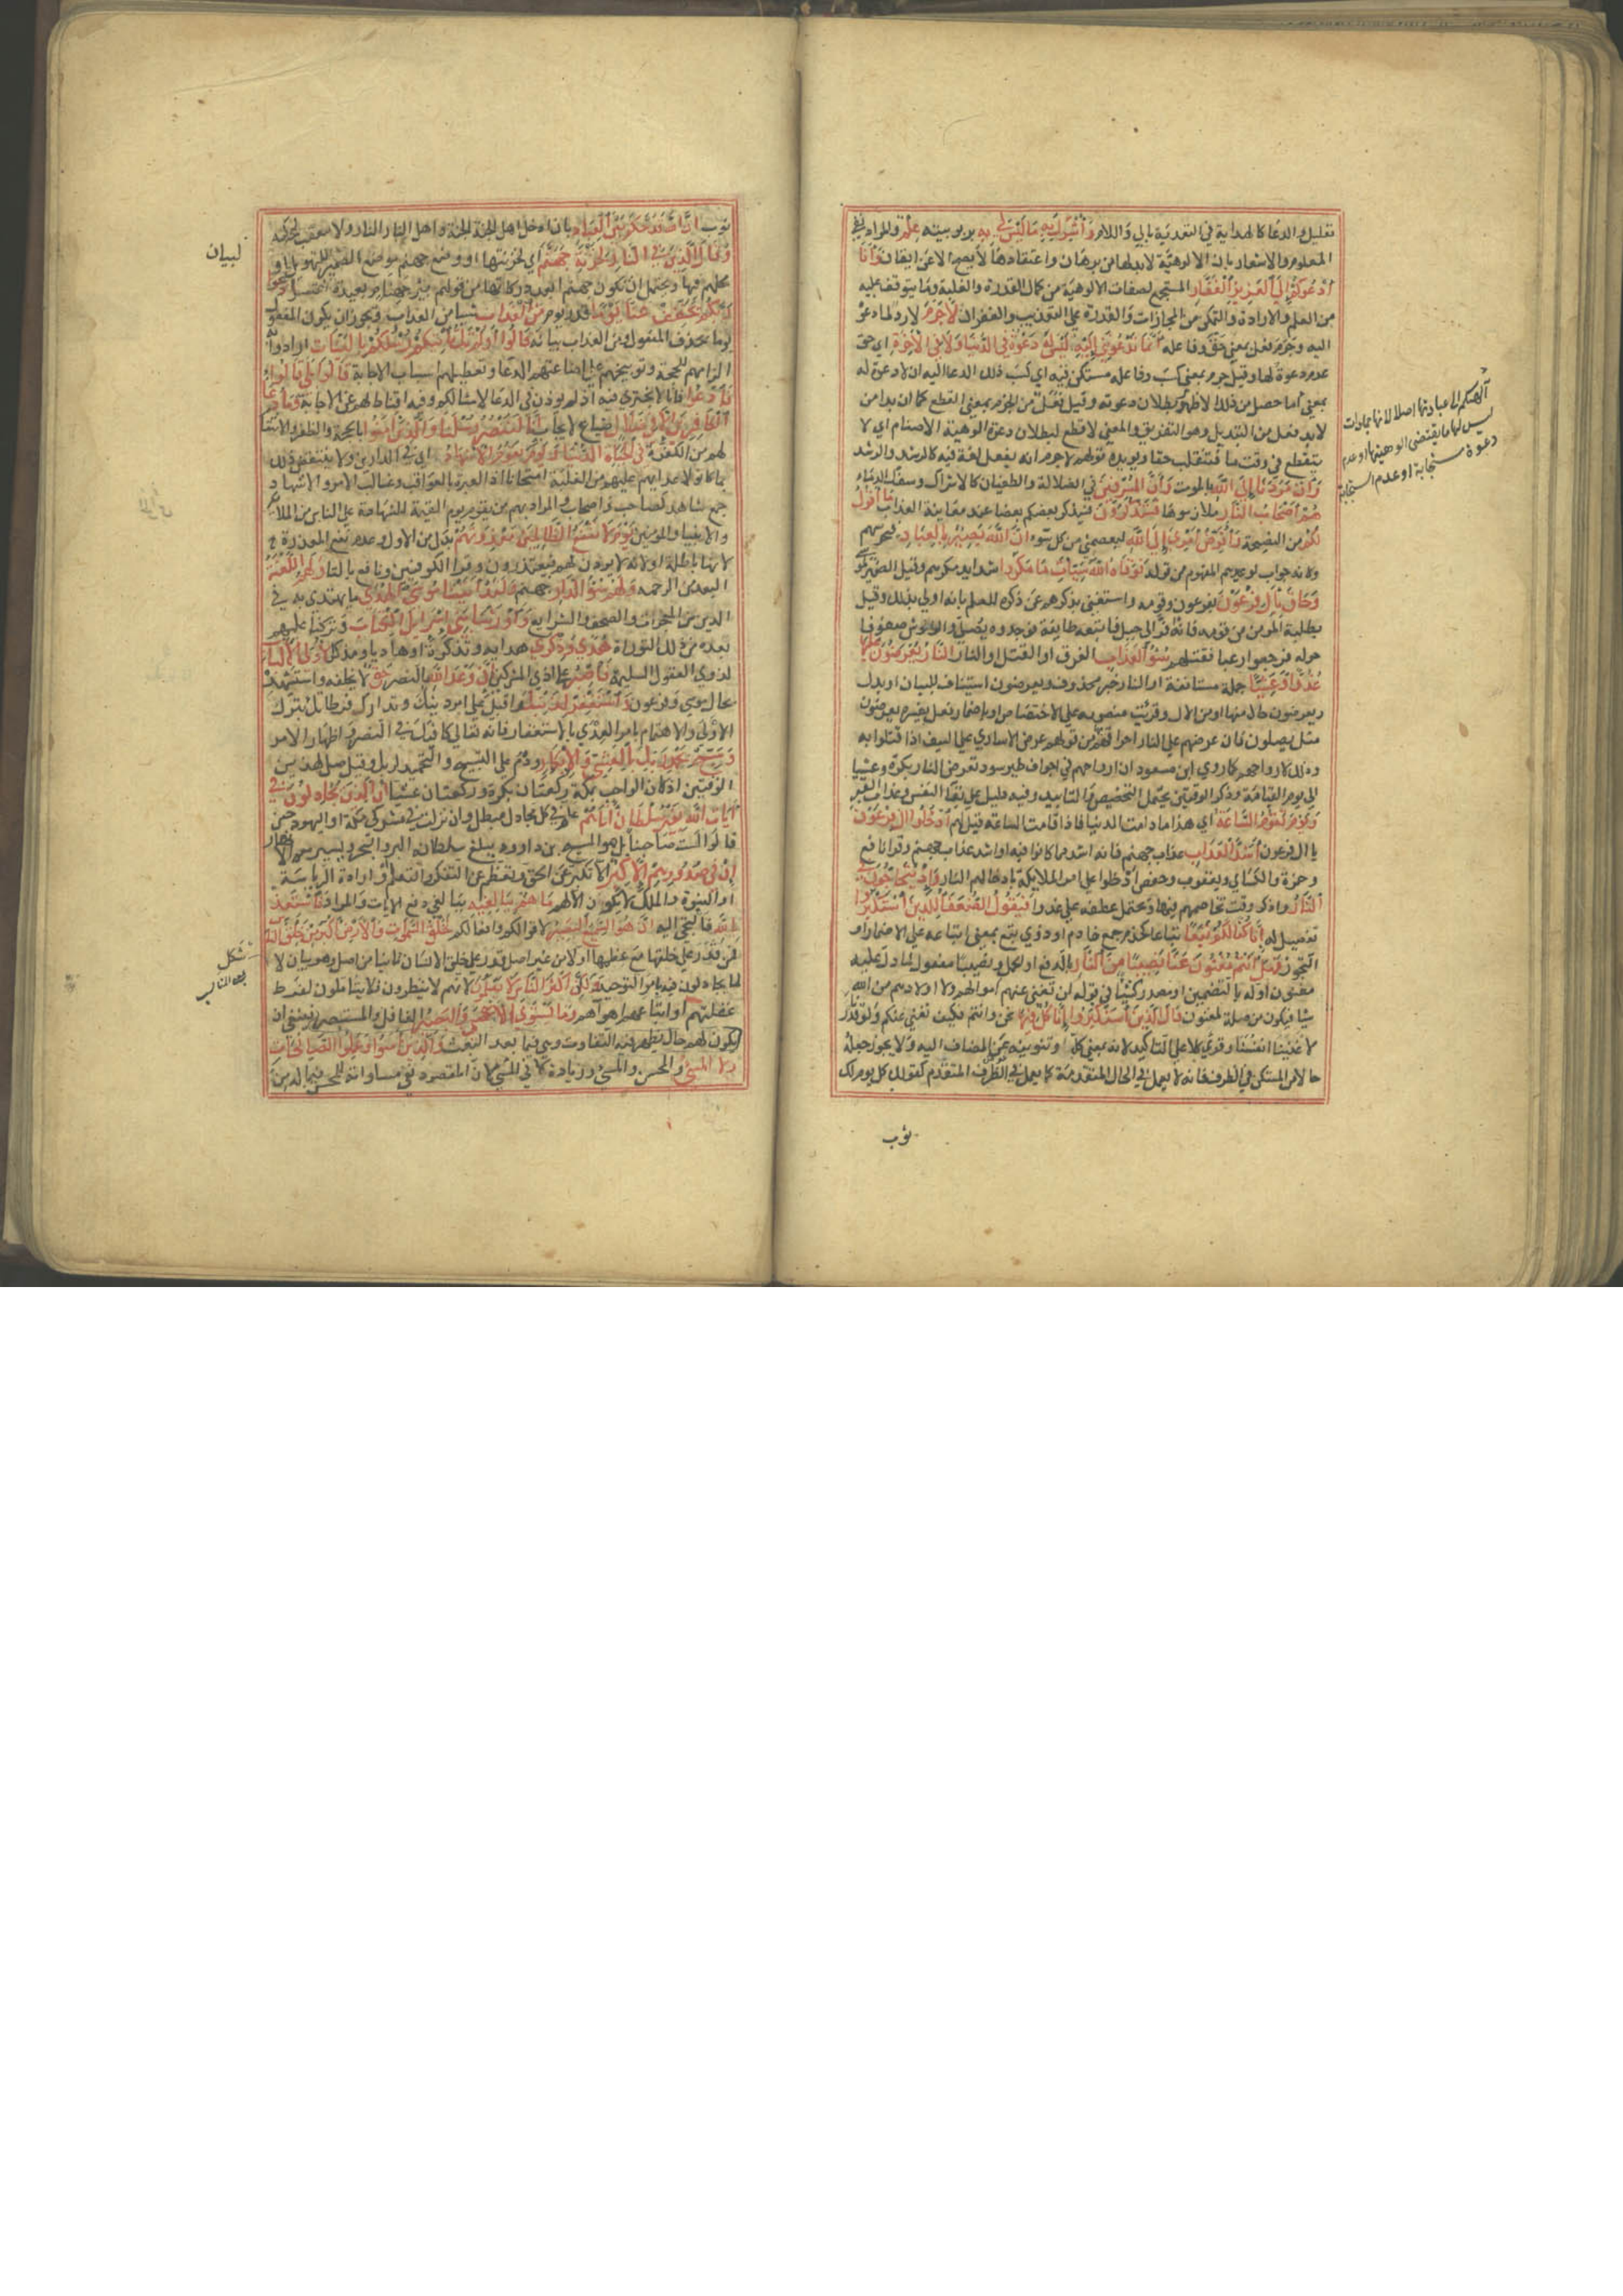 تعليل والدعا كالهداية في التعدية بالي واللام وأشرك به ما ليس لي به بربوبيته علم والمراد نفي
المعلوم والاشعار بان الالوهية لابد لها من برهان واعتقادها لا يصح الا عن ايقان وأنا
أدعوكم إلى العزيز الغفار المستجمع لصفات الالوهية من كمال القدرة والغلبة وما يتوقف عليه
من العلم والارادة والتمكن من المجازات والقدرة علي التعذيب والغفران لا جرم لا رد لما دعوه
اليه وجرم فعل بمعني حق وفاعله أنما تدعونني إليه ليس له دعوة في الدنيا ولا في الآخرة اي حق
عدم دعوة لها وقيل جرم بمعني كسب وفاعله مستكن فيه اي كسب ذلك الدعا اليه ان لا دعوة له
بمعني ما حصل من ذلك الا ظهور بطلان دعوته وقيل فعل من الجرم بمعني القطع كما ان بدا من
لابد فعل من التبديد وهو التفريق والمعني لا قطع لبطلان دعوة الوهية الاصنام اي لا
ينقطع في وقت ما فتنقلب حقا ويويده قولهم لا جرم انه يفعل لغة فيه كالرشد والرشد
وأن مردنا إلى الله بالموت وأن المسرفين في الضلالة والطغيان كالاشراك وسفك الدماء
هم أصحاب النار ملازموها فستذكرون فيذكر بعضكم بعضا عند معاينة العذاب ما أقول
لكم من النصيحة وأفوض أمري إلى الله ليعصمني من كل سوء إن الله بصير بالعباد فيحرسهم
وكانه جواب توعدهم المفهوم من قوله فوقاه الله سيئات ما مكروا شدايد مكرهم وقيل الضمير لموسي
وحاق بآل فرعون بفرعون وقومه واستغني بذكرهم عن ذكره للعلم بانه اولي بذلك وقيل
بطلبة المومن من قومه فانه فر الي جبل فاتبعه طايفة فوجدوه يصلي والوحوش صفوفا
حوله فرجعوا رعبا فقتلهم سوء العذاب الغرق او القتل والنار النار يعرضون عليها
غدوا وعشيا جملة مستانفة او النار خبر محذوف ويعرضون استيناف للبيان او بدل
ويعرضون حال منها او من الال وقريت منصوبه علي الاختصاص او باضمار فعل يفسره يعرضون
مثل يصلون فان عرضهم علي النار احراقهم من قولهم عرض الاساري علي السيف اذا قتلوا به
وذلك لارواحهم كما روي ابن مسعود ان ارواحهم في اجواف طير سود تعرض النار بكرة وعشيا
الي يوم القيامة وذكر الوقتين يحتمل التخصيص والتابيد وفيه دليل علي بقا النفس وعذاب القبر
ويوم تقوم الساعة اي هذا ما دامت الدنيا فاذا قامت الساعة قيل لهم أدخلوا آل فرعون
يا ال فرعون أشد العذاب عذاب جهنم فانه اشد مما كانوا فيه او اشد عذاب جهنم وقرا نافع
وحمزة والكسائي ويعقوب وحفص أدخلوا علي امر الملايكة بادخالهم النار وإذ يتحاجون في
النار واذكر وقت تخاصمهم فيها ويحتمل عطفه علي غدوا فيقول الضعفاء للذين استكبروا
تفصيل له إنا كنا لكم تبعا تباعا كخدم جمع خادم او ذوي تبع بمعني اتباعه علي الاضمار او
التجوز فهل أنتم مغنون عنا نصيبا من النار بالدفع او الحمل ونصيبا مفعول لما دل عليه
مغنون اوله بالتضمين او مصدر كشيا في قوله لن تغني عنهم اموالهم ولا اولادهم من الله
شيا فيكون من صلة لمغنون قال الذين استكبروا إنا كل فيها نحن وانتم فكيف نغني عنكم ولو قدرنا
لاغنينا انفسنا وقري كلا علي التاكيد لانه بمعني كلنا وتنوينه عوض المضاف اليه ولا يجوز جعله
حالا من المستكن في الظرف فانه لا يعمل في الحال المتقدمة كما يعمل في الظرف المتقدم كقولك كل يوم لك
ثوب
آلهتكم الي عبادتها اصلا لانها جمادات
ليس لها ما يقتضي الوهيتها او عدم
دعوة مستجابة او عدم استجابة
ثوب إن الله قد حكم بين العباد بان ادخل اهل الجنة الجنة واهل النار النار ولا معقب لحكمه
وقال الذين في النار لخزنة جهنم أي لخزنتها ووضع جهنم موضع الضمير للتهويل او
لبيان
محلهم فيها ويحتمل ان تكون جهنم ابعد دركاتها من قولهم بير جهنام بعيدة القعر ادعوا
ربكم يخفف عنا يوما قدر يوم من العذاب شيا من العذاب ويجوز ان يكون المفعول
يوما بحذف المفعول ومن العذاب بيانه قالوا أو لم تك تأتيكم رسلكم بالبينات ارادوا به
الزامهم للحجة وتوبيخهم علي اضاعتهم الدعا وتعطيلهم اسباب الاجابة قالوا بلى قالوا
فادعوا فانا لا نجتري فيه اذ لم يوذن في الدعا لامثالكم وفيه اقناط لهم عن الاجابة وما دعاء
الكافرين إلا في ضلال ضياع لا يجاب إنا لننصر رسلنا والذين آمنوا بالحجة والظفر والانتقام
لهم من الكفرة في الحياة الدنيا ويوم يقوم الأشهاد اي في الدارين ولا ينتقض ذلك
بما كان لاعدايهم عليهم من الغلبة امتحانا اذ العبرة بالعواقب وغالب الامر والاشهاد
جمع شاهد كصاحب واصحاب والمراد بهم من يقوم يوم القيمة للشهادة علي الناس من الملايكة
والانبيا والمومنين يوم لا تنفع الظالمين معذرتهم بدل من الاول وعدم نفع المعذرة
لانها باطلة او لانه لا يوذن لهم فيعتذرون وقرا الكوفيون ونافع بالتا ولهم اللعنة
البعد من الرحمة ولهم سوء الدار جهنم ولقد آتينا موسى الهدى ما يهتدي به في
الدين من المعجزات والصحف والشرايع وأورثنا بني إسرائيل الكتاب وتركنا عليهم
بعده من ذلك التوراة هدى وذكرى هداية وتذكرة او هاديا ومذكرا لأولي الألباب
لذوي العقول السليمة فاصبر علي اذي المشركين إن وعد الله بالنصر حق لا يخلفه واستشهد
بحال موسي وفرعون واستغفر لذنبك واقبل علي امر دينك وتدارك فرطاتك بترك
الاولي والاهتمام بامر العدي بالاستغفار فانه تعالي كافيك في النصر واظهار الامر
وسبح بحمد ربك بالعشي والإبكار ودم علي التسبيح والتحميد لربك وقيل صل لهذين
الوقتين اذ كان الواجب بمكة ركعتان بكرة وركعتان عشيا إن الذين يجادلون في
آيات الله بغير سلطان أتاهم عام في كل مجادل مبطل وان نزلت في مشركي مكة او اليهود حين
قالوا لست صاحبنا بل هو المسيح بن داوود يبلغ سلطانه البر والبحر ويسير معه الانهار
إن في صدورهم إلا كبر الا تكبر عن الحق وتعظم عن التفكر والتعلم او ارادة الرياسة
او النبوة والملك لا يكون الا لهم ما هم ببالغيه ببالغي دفع الايات والمراد فاستعذ
بالله فالتجي اليه إنه هو السميع البصير لاقوالكم وافعالكم لخلق السموات والأرض أكبر من خلق الناس
فمن قدر علي خلقها مع عظمها اولا من غير اصل قدر علي خلق الانسان ثانيا من اصل وهو بيان لا
شكل
لما يجادلون فيه بامر التوحيد ولكن أكثر الناس لا يعلمون لانهم لا ينظرون ولا يتاملون لفرط
غفلتهم واتباعهم اهوآهم وما يستوي الأعمى والبصير الغافل والمستبصر فينبغي ان
يكون لهم حال يظهر فيه التفاوت وهي فيما بعد البعث والذين آمنوا وعملوا الصالحات
ولا المسيء والمحسن والمسي وزيادة لا في المسي لان المقصود نفي مساواته للمحسن فيما له من